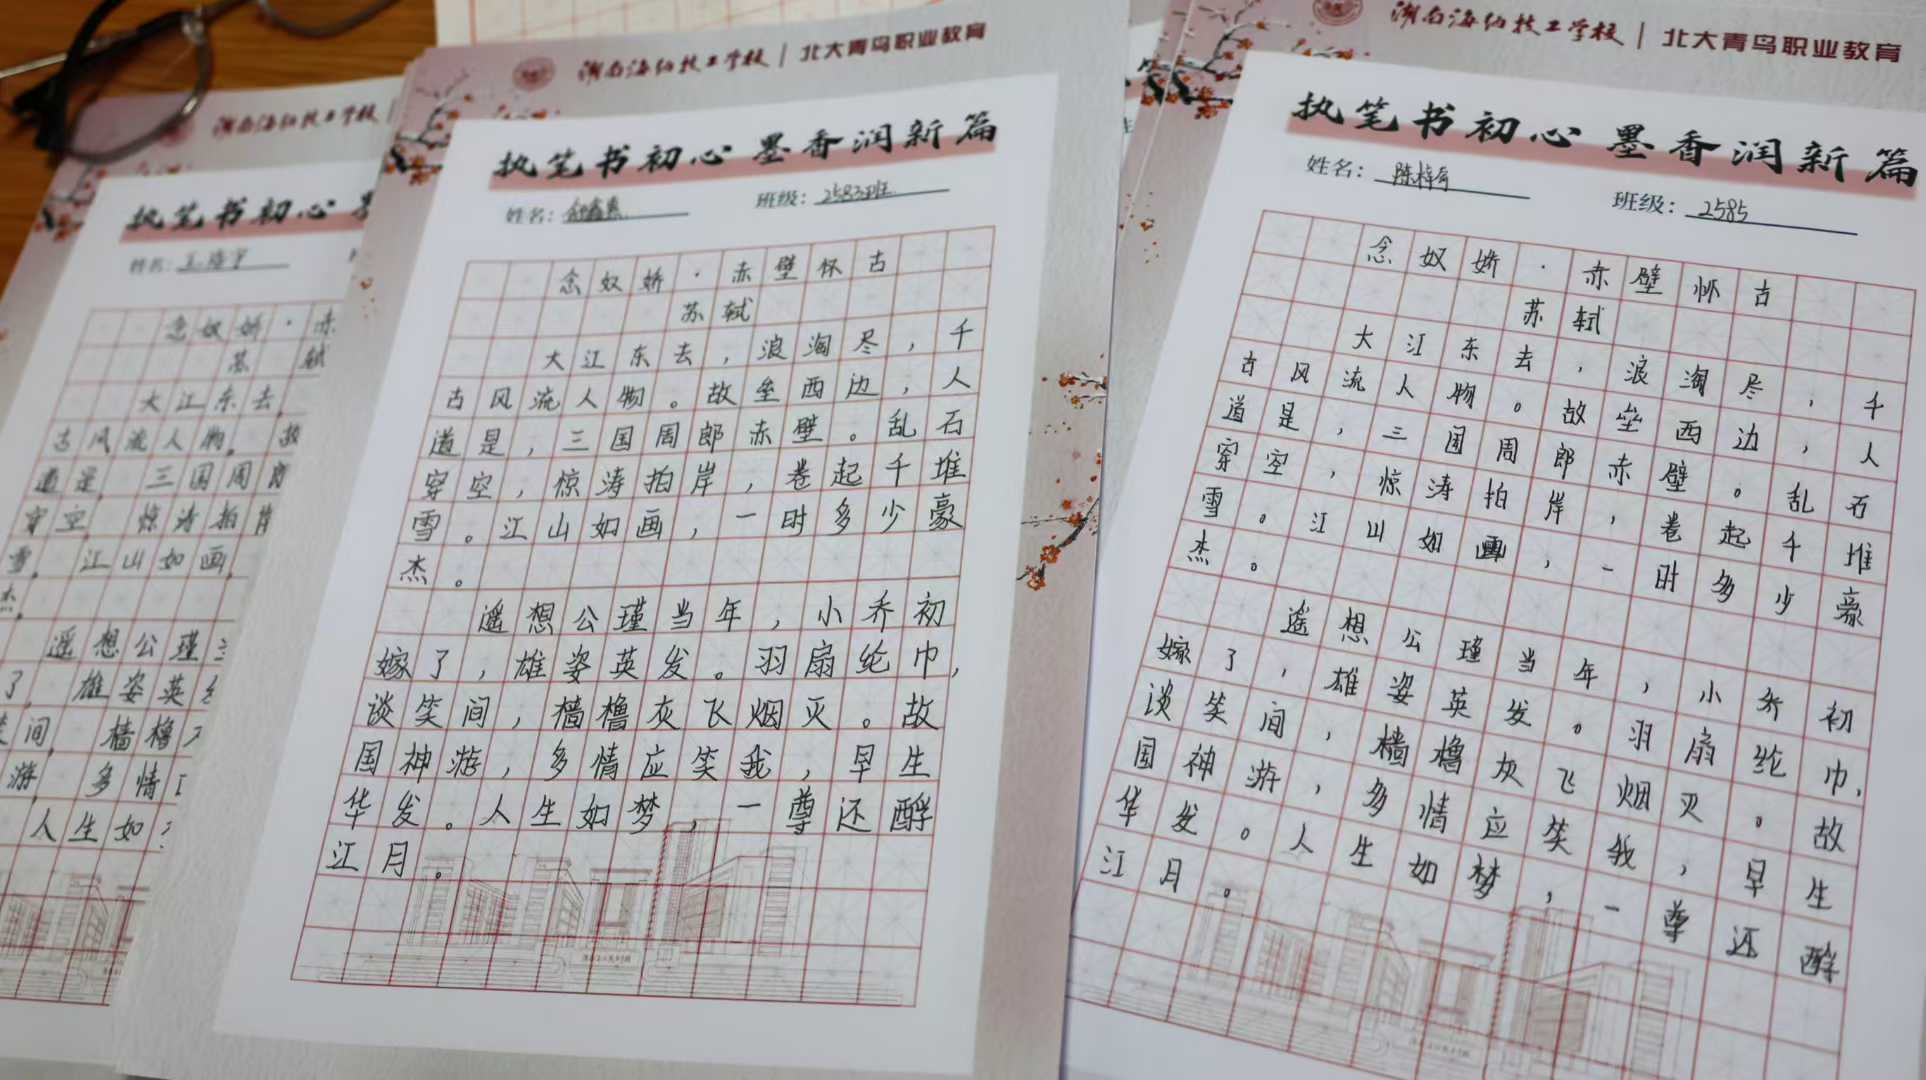 湖南海纳技工学校
执笔书初心
姓名：
念奴娇·赤
苏 轼
大江东去，
古风流人物。故
道是，三国周郎
穿空，惊涛拍岸
雪。江山如画，
杰。
遥想公瑾
了，雄姿英
笑间，樯橹
游，多情
人生如
湖南海纳技工学校 | 北大青鸟职业教育
执笔书初心 墨香润新篇
姓名： 班级：2583班
念奴娇·赤壁怀古
苏轼
大江东去，浪淘尽，千
古风流人物。故垒西边，人
道是，三国周郎赤壁。乱石
穿空，惊涛拍岸，卷起千堆
雪。江山如画，一时多少豪
杰。
遥想公瑾当年，小乔初
嫁了，雄姿英发。羽扇纶巾，
谈笑间，樯橹灰飞烟灭。故
国神游，多情应笑我，早生
华发。人生如梦，一尊还酹
江月。
湖南海纳技工学校 | 北大青鸟职业教育
执笔书初心 墨香润新篇
姓名： 班级：2585
念奴娇·赤壁怀古
苏轼
大江东去，浪淘尽，千
古风流人物。故垒西边，人
道是，三国周郎赤壁。乱石
穿空，惊涛拍岸，卷起千堆
雪。江山如画，一时多少豪
杰。
遥想公瑾当年，小乔初
嫁了，雄姿英发。羽扇纶巾，
谈笑间，樯橹灰飞烟灭。故
国神游，多情应笑我，早生
华发。人生如梦，一尊还酹
江月。